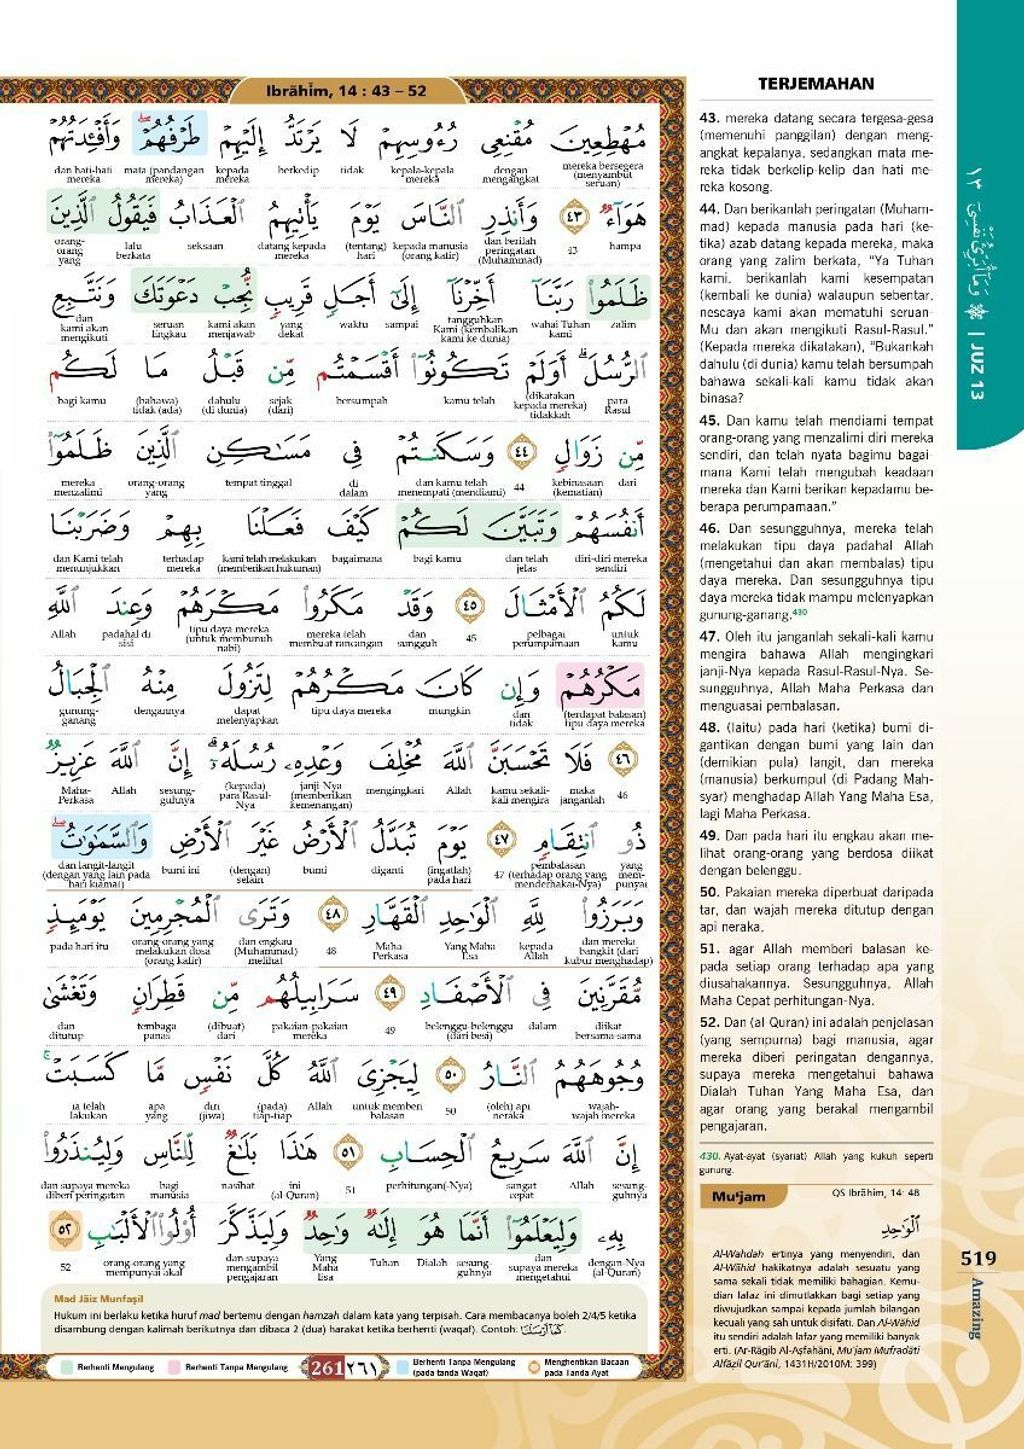 Ibrāhīm, 14 : 43 – 52
مُهْطِعِينَ مُقْنِعِى رُءُوسِهِمْ لَا يَرْتَدُّ إِلَيْهِمْ طَرْفُهُمْ ۖ وَأَفْـِٔدَتُهُمْ
mereka bersegera (menyambut seruan) dengan mengangkat kepala-kepala mereka tidak berkedip kepada mereka mata (pandangan mereka) dan hati-hati mereka
هَوَآءٌ ٤٣ وَأَنذِرِ ٱلنَّاسَ يَوْمَ يَأْتِيهِمُ ٱلْعَذَابُ فَيَقُولُ ٱلَّذِينَ
hampa 43 dan berilah peringatan (Muhammad) kepada manusia (orang kafir) (tentang) hari datang kepada mereka seksaan lalu berkata orang-orang yang
ظَلَمُوا۟ رَبَّنَآ أَخِّرْنَآ إِلَىٰٓ أَجَلٍ قَرِيبٍ نُّجِبْ دَعْوَتَكَ وَنَتَّبِعِ
zalim wahai Tuhan kami tangguhkan Kami (kembalikan kami ke dunia) sampai waktu yang dekat kami akan menjawab seruan Engkau dan kami akan mengikuti
ٱلرُّسُلَ ۗ أَوَلَمْ تَكُونُوٓا۟ أَقْسَمْتُم مِّن قَبْلُ مَا لَكُم
para Rasul (dikatakan kepada mereka) tidakkah kamu telah bersumpah sejak (dari) dahulu (di dunia) (bahawa) tidak (ada) bagi kamu
مِّن زَوَالٍ ٤٤ وَسَكَنتُمْ فِى مَسَـٰكِنِ ٱلَّذِينَ ظَلَمُوٓا۟
dari kebinasaan (kematian) 44 dan kamu telah menempati (mendiami) di dalam tempat tinggal orang-orang yang mereka menzalimi
أَنفُسَهُمْ وَتَبَيَّنَ لَكُمْ كَيْفَ فَعَلْنَا بِهِمْ وَضَرَبْنَا
diri-diri mereka sendiri dan telah jelas bagi kamu bagaimana kami telah melakukan (memberikan hukuman) terhadap mereka dan Kami telah menunjukkan
لَكُمُ ٱلْأَمْثَالَ ٤٥ وَقَدْ مَكَرُوا۟ مَكْرَهُمْ وَعِندَ ٱللَّهِ
untuk kamu pelbagai perumpamaan 45 dan sungguh mereka telah membuat rancangan tipu daya mereka (untuk membunuh nabi) padahal di sisi Allah
مَكْرُهُمْ وَإِن كَانَ مَكْرُهُمْ لِتَزُولَ مِنْهُ ٱلْجِبَالُ
(terdapat balasan) tipu daya mereka dan tidak mungkin tipu daya mereka dapat melenyapkan dengannya gunung-ganang
٤٦ فَلَا تَحْسَبَنَّ ٱللَّهَ مُخْلِفَ وَعْدِهِۦ رُسُلَهُۥٓ ۗ إِنَّ ٱللَّهَ عَزِيزٌ
46 maka janganlah kamu sekali-kali mengira Allah mengingkari janji-Nya (memberikan kemenangan) (kepada) para Rasul-Nya sesungguhnya Allah Maha-Perkasa
ذُو ٱنتِقَامٍ ٤٧ يَوْمَ تُبَدَّلُ ٱلْأَرْضُ غَيْرَ ٱلْأَرْضِ وَٱلسَّمَـٰوَٰتُ ۖ
yang mempunyai pembalasan (terhadap orang yang menderhakai-Nya) 47 (ingatlah) pada hari diganti bumi (dengan) selain bumi ini dan langit-langit (dengan yang lain pada hari kiamat)
وَبَرَزُوا۟ لِلَّهِ ٱلْوَٰحِدِ ٱلْقَهَّارِ ٤٨ وَتَرَى ٱلْمُجْرِمِينَ يَوْمَئِذٍ
dan mereka bangkit (dari kubur menghadap) kepada Allah Yang Maha Esa Maha-Perkasa 48 dan engkau (Muhammad) melihat orang-orang yang melakukan dosa (orang kafir) pada hari itu
مُّقَرَّنِينَ فِى ٱلْأَصْفَادِ ٤٩ سَرَابِيلُهُم مِّن قَطِرَانٍ وَتَغْشَىٰ
diikat bersama-sama dalam belenggu-belenggu (dari besi) 49 pakaian-pakaian mereka (dibuat) dari tembaga panas dan ditutup
وُجُوهَهُمُ ٱلنَّارُ ٥٠ لِيَجْزِىَ ٱللَّهُ كُلَّ نَفْسٍ مَّا كَسَبَتْ ۚ
wajah-wajah mereka (oleh) api neraka 50 untuk memberi balasan Allah (pada) tiap-tiap diri (jiwa) apa yang ia telah lakukan
إِنَّ ٱللَّهَ سَرِيعُ ٱلْحِسَابِ ٥١ هَـٰذَا بَلَـٰغٌ لِّلنَّاسِ وَلِيُنذَرُوا۟
sesungguhnya Allah sangat cepat perhitungan(-Nya) 51 ini (al-Quran) nasihat bagi manusia dan supaya mereka diberi peringatan
بِهِۦ وَلِيَعْلَمُوٓا۟ أَنَّمَا هُوَ إِلَـٰهٌ وَٰحِدٌ وَلِيَذَّكَّرَ أُو۟لُوا۟ ٱلْأَلْبَـٰبِ ٥٢
dengan-Nya (al-Quran) dan supaya mereka mengetahui sesungguhnya Dialah Tuhan Yang Maha Esa dan supaya mengambil pengajaran orang-orang yang mempunyai akal 52
Mad Jāiz Munfaṣil
Hukum ini berlaku ketika huruf mad bertemu dengan hamzah dalam kata yang terpisah. Cara membacanya boleh 2/4/5 ketika
disambung dengan kalimah berikutnya dan dibaca 2 (dua) harakat ketika berhenti (waqaf). Contoh: كَمَآ أَرْسَلْنَا.
Berhenti Mengulang Berhenti Tanpa Mengulang 261 ٢٦١ Berhenti Tanpa Mengulang (pada tanda Waqaf) Menghentikan Bacaan pada Tanda Ayat
TERJEMAHAN
43. mereka datang secara tergesa-gesa
(memenuhi panggilan) dengan meng-
angkat kepalanya, sedangkan mata me-
reka tidak berkelip-kelip dan hati me-
reka kosong.
44. Dan berikanlah peringatan (Muham-
mad) kepada manusia pada hari (ke-
tika) azab datang kepada mereka, maka
orang yang zalim berkata, “Ya Tuhan
kami, berikanlah kami kesempatan
(kembali ke dunia) walaupun sebentar,
nescaya kami akan mematuhi seruan-
Mu dan akan mengikuti Rasul-Rasul.”
(Kepada mereka dikatakan), “Bukankah
dahulu (di dunia) kamu telah bersumpah
bahawa sekali-kali kamu tidak akan
binasa?
45. Dan kamu telah mendiami tempat
orang-orang yang menzalimi diri mereka
sendiri, dan telah nyata bagimu bagai-
mana Kami telah mengubah keadaan
mereka dan Kami berikan kepadamu be-
berapa perumpamaan.”
46. Dan sesungguhnya, mereka telah
melakukan tipu daya padahal Allah
(mengetahui dan akan membalas) tipu
daya mereka. Dan sesungguhnya tipu
daya mereka tidak mampu melenyapkan
gunung-ganang.430
47. Oleh itu janganlah sekali-kali kamu
mengira bahawa Allah mengingkari
janji-Nya kepada Rasul-Rasul-Nya. Se-
sungguhnya, Allah Maha Perkasa dan
menguasai pembalasan.
48. (Iaitu) pada hari (ketika) bumi di-
gantikan dengan bumi yang lain dan
(demikian pula) langit, dan mereka
(manusia) berkumpul (di Padang Mah-
syar) menghadap Allah Yang Maha Esa,
lagi Maha Perkasa.
49. Dan pada hari itu engkau akan me-
lihat orang-orang yang berdosa diikat
dengan belenggu.
50. Pakaian mereka diperbuat daripada
tar, dan wajah mereka ditutup dengan
api neraka.
51. agar Allah memberi balasan ke-
pada setiap orang terhadap apa yang
diusahakannya. Sesungguhnya, Allah
Maha Cepat perhitungan-Nya.
52. Dan (al Quran) ini adalah penjelasan
(yang sempurna) bagi manusia, agar
mereka diberi peringatan dengannya,
supaya mereka mengetahui bahawa
Dialah Tuhan Yang Maha Esa, dan
agar orang yang berakal mengambil
pengajaran.
430. Ayat-ayat (syariat) Allah yang kukuh seperti
gunung.
Mu‘jam QS Ibrāhīm, 14: 48
ٱلْوَٰحِدِ
Al-Wahdah ertinya yang menyendiri, dan
Al-Wāhid hakikatnya adalah sesuatu yang
sama sekali tidak memiliki bahagian. Kemu-
dian lafaz ini dimutlakkan bagi setiap yang
diwujudkan sampai kepada jumlah bilangan
kecuali yang sah untuk disifati. Dan Al-Wāhid
itu sendiri adalah lafaz yang memiliki banyak
erti. (Ar-Rāgib Al-Aṣfahāni, Mu‘jam Mufradāti
Alfāẓil Qur’āni, 1431H/2010M: 399)
١٣ وَمَآ أُبَرِّئُ نَفْسِىٓ | JUZ 13
519
Amazing